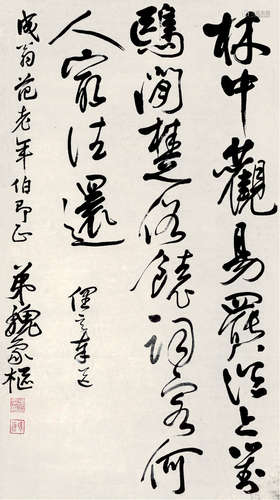 林中觀易罷溪上對
鷗閒楚俗饒詞客何
人最往還
成翁范老年伯即正
弟魏象樞